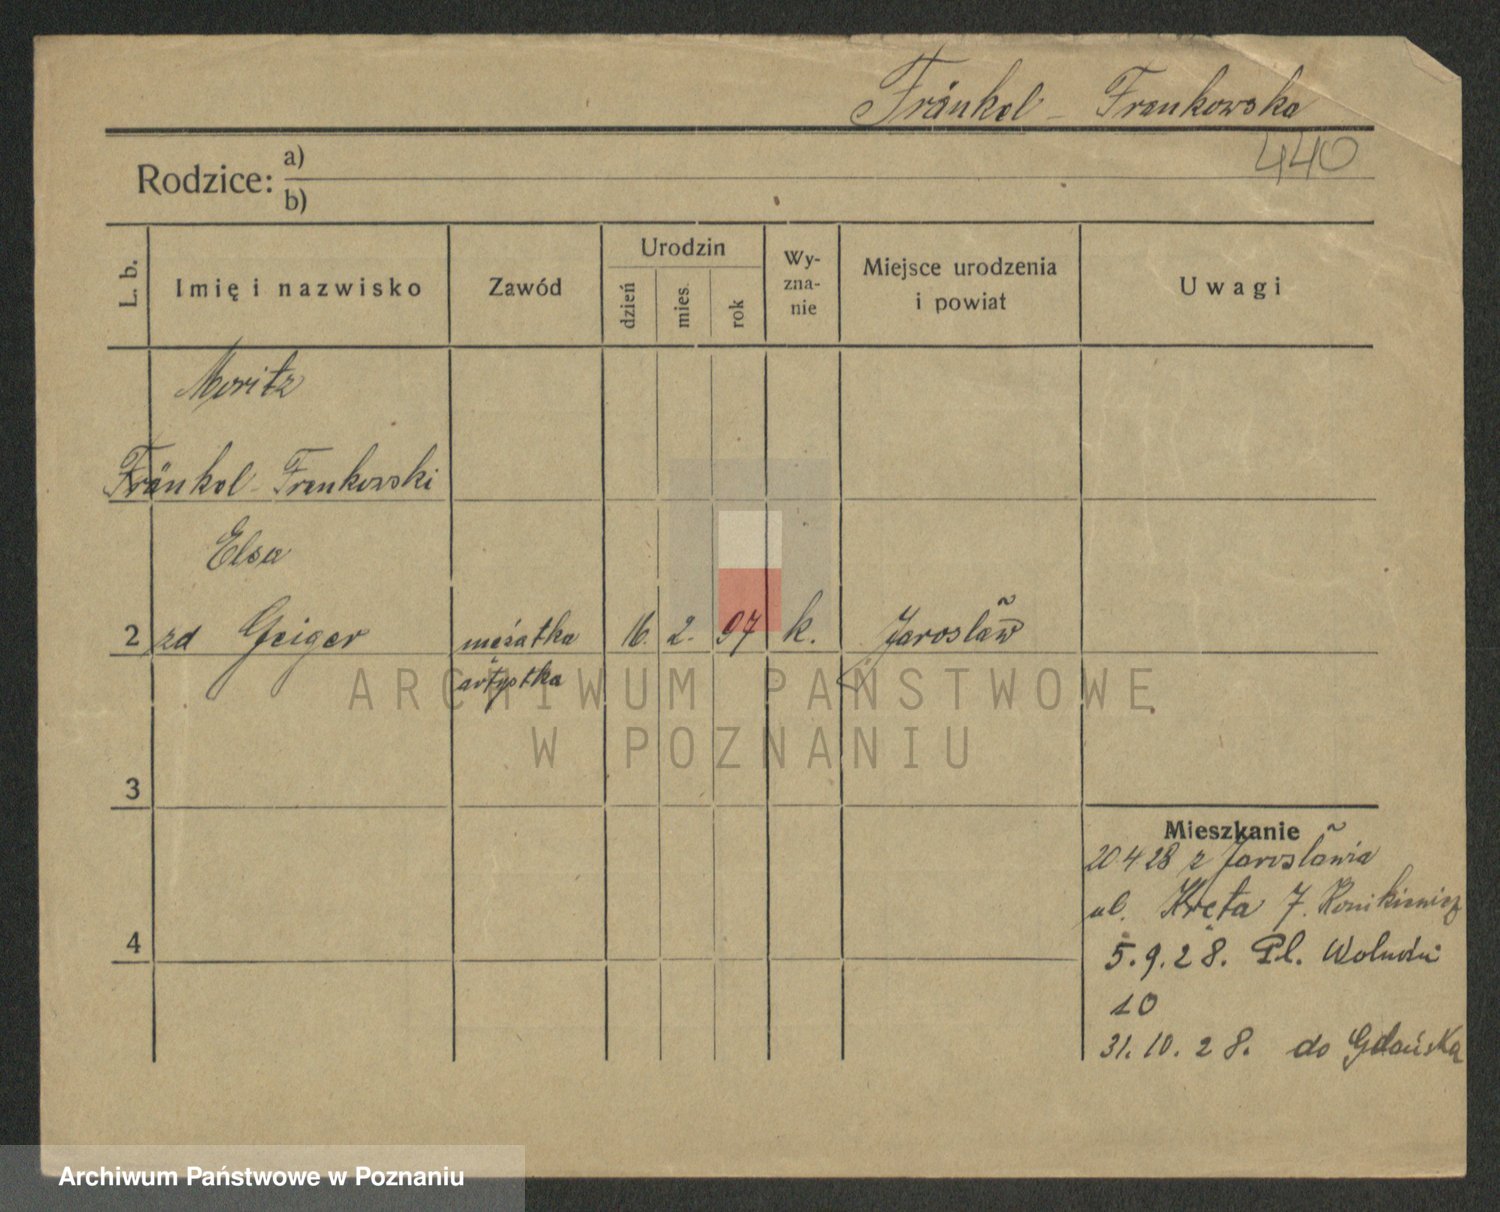 Fränkel - Frenkowska
440
Rodzice: a)
b)
L. b.
Imię i nazwisko
Zawód
Urodzin
dzień
mies.
rok
Wy-
zna-
nie
Miejsce urodzenia
i powiat
Uwagi
Moritz
Fränkel - Frenkowski
Elsa
2 zd Geiger mężatka 16. 2. 97 k. Jarosław
artystka
ARCHIWUM PAŃSTWOWE
W POZNANIU
3
Mieszkanie
20 4 28 z Jarosławia
ul. Kręta 7.
4
5.9.28. Pl. Wolności
10
31.10.28. do Gdańska
Archiwum Państwowe w Poznaniu